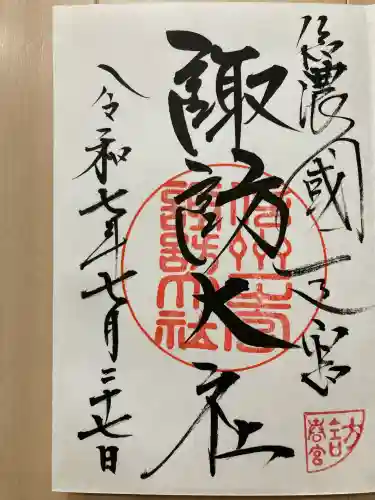 信濃國一之宮
諏訪大社
令和七年七月二十七日